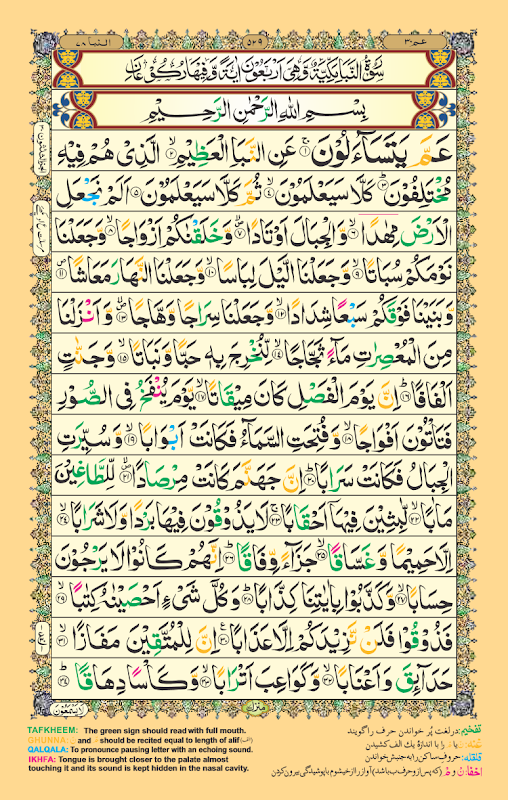 عم ٣٠
٥٦٩
النبا ٧٨
سُوْرَةُ النَّبَاِ مَكِّيَّةٌ وَّهِيَ اَرْبَعُوْنَ اٰيَةً وَّفِيْهَا رُكُوْعَانِ
بِسْمِ اللّٰهِ الرَّحْمٰنِ الرَّحِيْمِ
عَمَّ يَتَسَآءَلُوْنَ ۝١ عَنِ النَّبَاِ الْعَظِيْمِ ۝٢ الَّذِيْ هُمْ فِيْهِ
مُخْتَلِفُوْنَ ۝٣ كَلَّا سَيَعْلَمُوْنَ ۝٤ ثُمَّ كَلَّا سَيَعْلَمُوْنَ ۝٥ اَلَمْ نَجْعَلِ
الْاَرْضَ مِهٰدًا ۝٦ وَّالْجِبَالَ اَوْتَادًا ۝٧ وَّخَلَقْنٰكُمْ اَزْوَاجًا ۝٨ وَّجَعَلْنَا
نَوْمَكُمْ سُبَاتًا ۝٩ وَّجَعَلْنَا الَّيْلَ لِبَاسًا ۝١٠ وَّجَعَلْنَا النَّهَارَ مَعَاشًا ۝١١
وَّبَنَيْنَا فَوْقَكُمْ سَبْعًا شِدَادًا ۝١٢ وَّجَعَلْنَا سِرَاجًا وَّهَّاجًا ۝١٣ وَّاَنْزَلْنَا
مِنَ الْمُعْصِرٰتِ مَآءً ثَجَّاجًا ۝١٤ لِّنُخْرِجَ بِهٖ حَبًّا وَّنَبَاتًا ۝١٥ وَّجَنّٰتٍ
اَلْفَافًا ۝١٦ اِنَّ يَوْمَ الْفَصْلِ كَانَ مِيْقَاتًا ۝١٧ يَّوْمَ يُنْفَخُ فِي الصُّوْرِ
فَتَاْتُوْنَ اَفْوَاجًا ۝١٨ وَّفُتِحَتِ السَّمَآءُ فَكَانَتْ اَبْوَابًا ۝١٩ وَّسُيِّرَتِ
الْجِبَالُ فَكَانَتْ سَرَابًا ۝٢٠ اِنَّ جَهَنَّمَ كَانَتْ مِرْصَادًا ۝٢١ لِّلطَّاغِيْنَ
مَاٰبًا ۝٢٢ لّٰبِثِيْنَ فِيْهَآ اَحْقَابًا ۝٢٣ لَا يَذُوْقُوْنَ فِيْهَا بَرْدًا وَّلَا شَرَابًا ۝٢٤
اِلَّا حَمِيْمًا وَّغَسَّاقًا ۝٢٥ جَزَآءً وِّفَاقًا ۝٢٦ اِنَّهُمْ كَانُوْا لَا يَرْجُوْنَ
حِسَابًا ۝٢٧ وَّكَذَّبُوْا بِاٰيٰتِنَا كِذَّابًا ۝٢٨ وَكُلَّ شَيْءٍ اَحْصَيْنٰهُ كِتٰبًا ۝٢٩
فَذُوْقُوْا فَلَنْ نَّزِيْدَكُمْ اِلَّا عَذَابًا ۝٣٠ اِنَّ لِلْمُتَّقِيْنَ مَفَازًا ۝٣١
حَدَآئِقَ وَاَعْنَابًا ۝٣٢ وَّكَوَاعِبَ اَتْرَابًا ۝٣٣ وَّكَاْسًا دِهَاقًا ۝٣٤
منزل
TAFKHEEM: The green sign should read with full mouth.
GHUNNA: and should be recited equal to length of alif
QALQALA: To pronounce pausing letter with an echoing sound.
IKHFA: Tongue is brought closer to the palate almost
touching it and its sound is kept hidden in the nasal cavity.
تفخیم: در لغت پُر خواندن حرف را گویند
غنه: یا را با اندازۀ یک الف کشیدن
قلقله: حروف ساکن را به جنبش خواندن
اخفا: ن و م (که پس از و حرف ب باشد) آواز را از خیشوم با پوشیدگی بیرون کردن